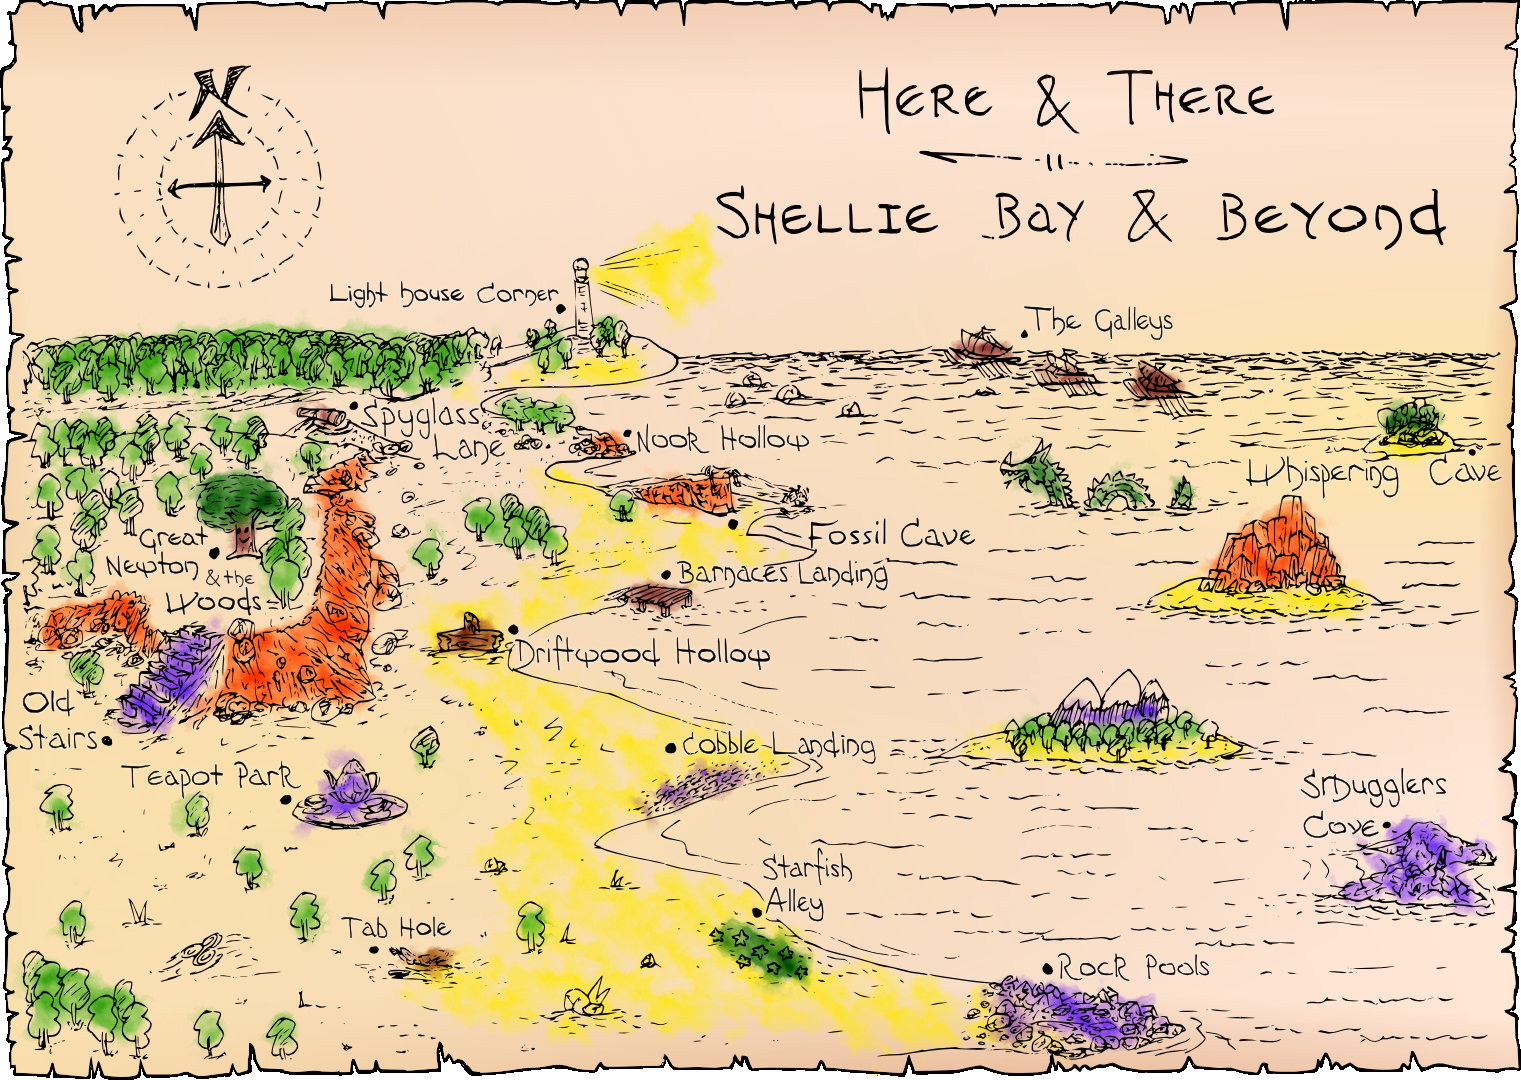 N
Here & There
Shellie Bay & Beyond
Light house Corner
The Galleys
Spyglass
Lane
Nook Hollow
Whispering Cave
Great
Newton & the
Woods
Fossil Cave
Barnaces Landing
Driftwood Hollow
Old
Stairs
Cobble Landing
Teapot Park
Smugglers
Cove
Starfish
Alley
Tab Hole
Rock Pools